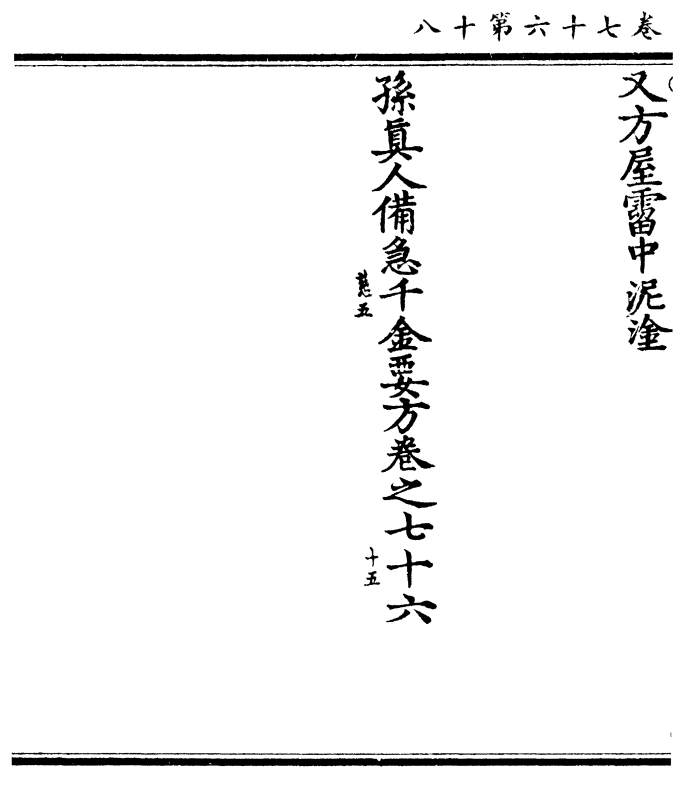 卷七十六第十八
又方屋霤中泥塗
孫眞人備急千金要方卷之七十六
五
十五